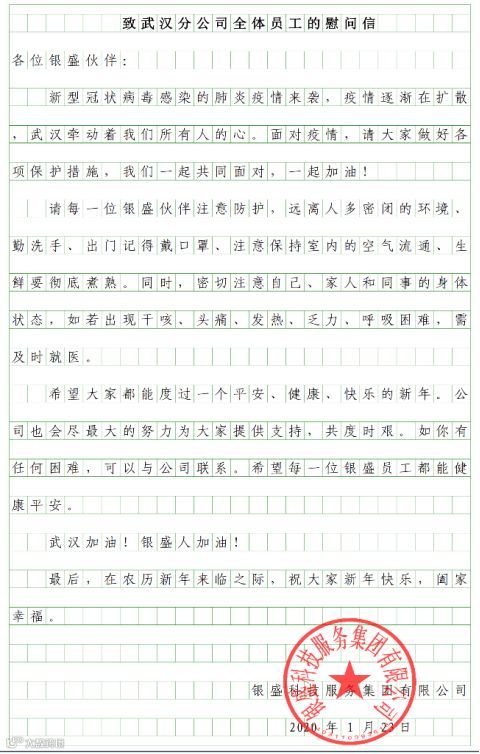 致武汉分公司全体员工的慰问信
各位银盛伙伴：
新型冠状病毒感染的肺炎疫情来袭，疫情逐渐在扩散
，武汉牵动着我们所有人的心。面对疫情，请大家做好各
项保护措施，我们一起共同面对，一起加油！
请每一位银盛伙伴注意防护，远离人多密闭的环境、
勤洗手、出门记得戴口罩、注意保持室内的空气流通、生
鲜要彻底煮熟。同时，密切注意自己、家人和同事的身体
状态，如若出现干咳、头痛、发热、乏力、呼吸困难，需
及时就医。
希望大家都能度过一个平安、健康、快乐的新年。公
司也会尽最大的努力为大家提供支持，共度时艰。如你有
任何困难，可以与公司联系。希望每一位银盛员工都能健
康平安。
武汉加油！银盛人加油！
最后，在农历新年来临之际，祝大家新年快乐，阖家
幸福。
银盛科技服务集团有限公司
银盛科技服务集团有限公司
2020 年 1 月 23 日